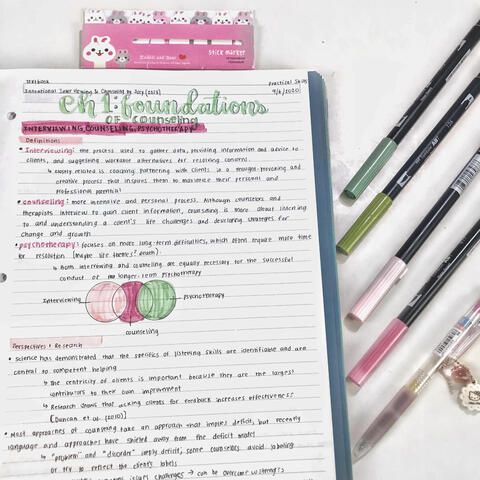 Rabbit and Bear
stick marker
textbook
Practical Skills
Intentional Interviewing & Counseling by Ivey (2018)
9/6/2020
Ch 1: foundations
OF counseling
INTERVIEWING, COUNSELING, PSYCHOTHERAPY
Definitions
• Interviewing: the process used to gather data, providing information and advice to
clients, and suggesting workable alternatives for resolving concerns.
↳ closely related is coaching: partnering with clients in a thought-provoking and
creative process that inspires them to maximize their personal and
professional potential
• counseling: more intensive and personal process. Although counselors and
therapists interview to gain client information, counseling is more about listening
to and understanding a client's life challenges and developing strategies for
change and growth.
• psychotherapy: focuses on more long-term difficulties, which often require more time
for resolution (maybe life themes? death)
↳ Both interviewing and counseling are equally important for the successful
conduct of longer-term psychotherapy
Interviewing
psychotherapy
counseling
Perspectives & Research
• Science has demonstrated that the specifics of listening skills are identifiable and are
central to competent helping
↳ The centricity of clients is important because they are the largest
contributors to their own improvement
↳ Research shows that asking clients for feedback increases effectiveness
[Duncan et al. (2010)]
• Most approaches of counseling take an approach that implies deficit, but recently
language and approaches have shifted away from the deficit model
↳ "problem" and "disorder" imply deficit, some counselors avoid labeling
or try to reflect the client's labels
issues challenges → can be overcome w/ strengths